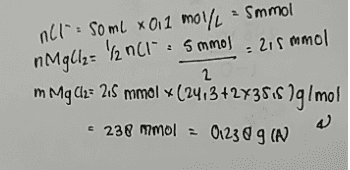 nCl⁻ = 50mL × 0,1 mol/L = 5mmol
nMgCl₂ = ½ nCl⁻ = 5 mmol / 2 = 2,5 mmol
m MgCl₂ = 2,5 mmol × (24,3+2×35,5) g/mol
= 238 mmol = 0,238 g (A)